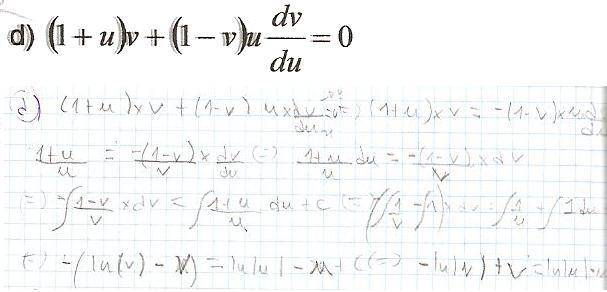 d) (1 + u)v + (1 − v)u dv/du = 0
d) (1+u)xv + (1-v) ux dv/du (1+u)xv = -(1-v)xu d
1+u/u = -(1-v)/v x dv/du (=) 1+u/u du = -(1-v)/v x dv
=) -∫ 1-v/v x dv = ∫ 1+u/u du + C (=) -∫(1/v - 1) x dv = ∫ 1/u + ∫ 1 du
-(ln(v) - v) = ln|u| - u + C (=) -ln|v| + v = ln|u|